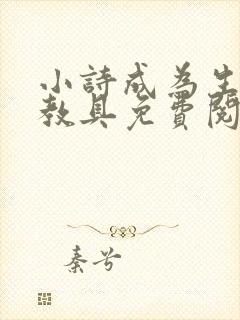 小詩成為生
教具免費閱
秦兮